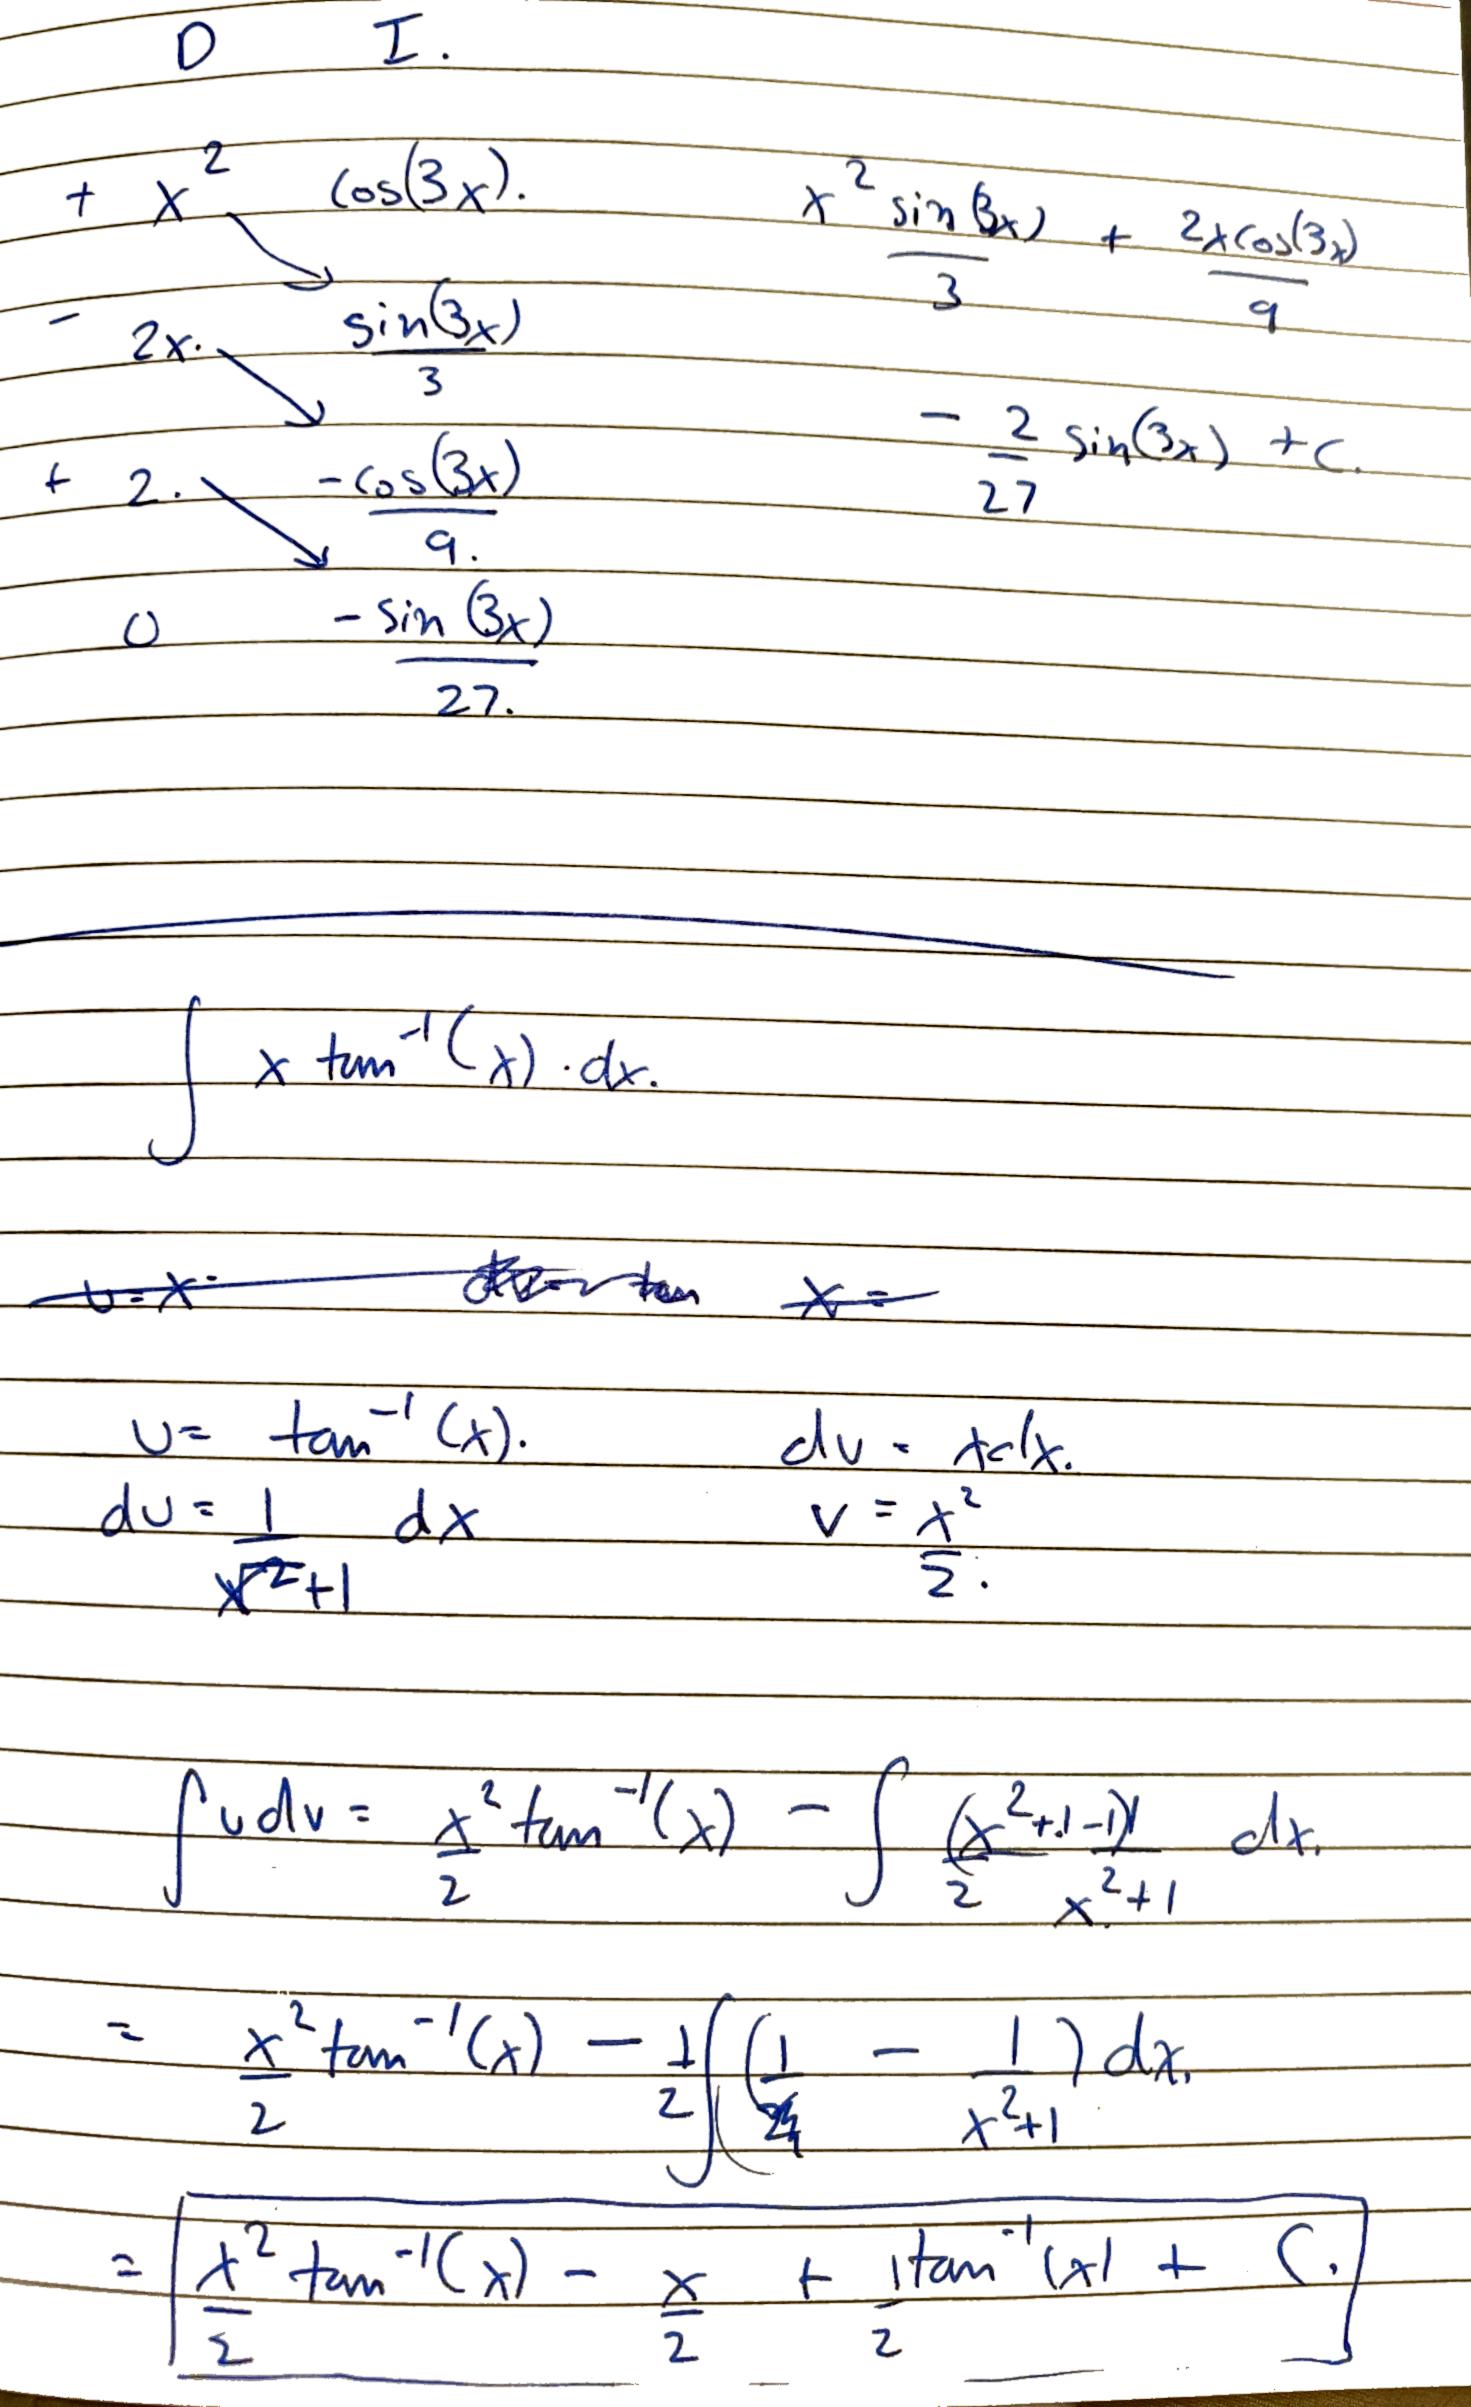 D I.
+ x² cos(3x).
- 2x. sin(3x)/3
+ 2. -cos(3x)/9.
0 -sin(3x)/27.
x² sin(3x)/3 + 2xcos(3x)/9
- 2/27 sin(3x) + c.
∫ x tan⁻¹(x) · dx.
u = tan⁻¹(x). dv = xdx.
du = 1/(x²+1) dx v = x²/2.
∫udv = x²/2 tan⁻¹(x) - ∫ (x²+1-1)/2 1/(x²+1) dx.
= x²/2 tan⁻¹(x) - 1/2 ∫(1/1 - 1/(x²+1)) dx.
= x²/2 tan⁻¹(x) - x/2 + 1/2 tan⁻¹(x) + C.